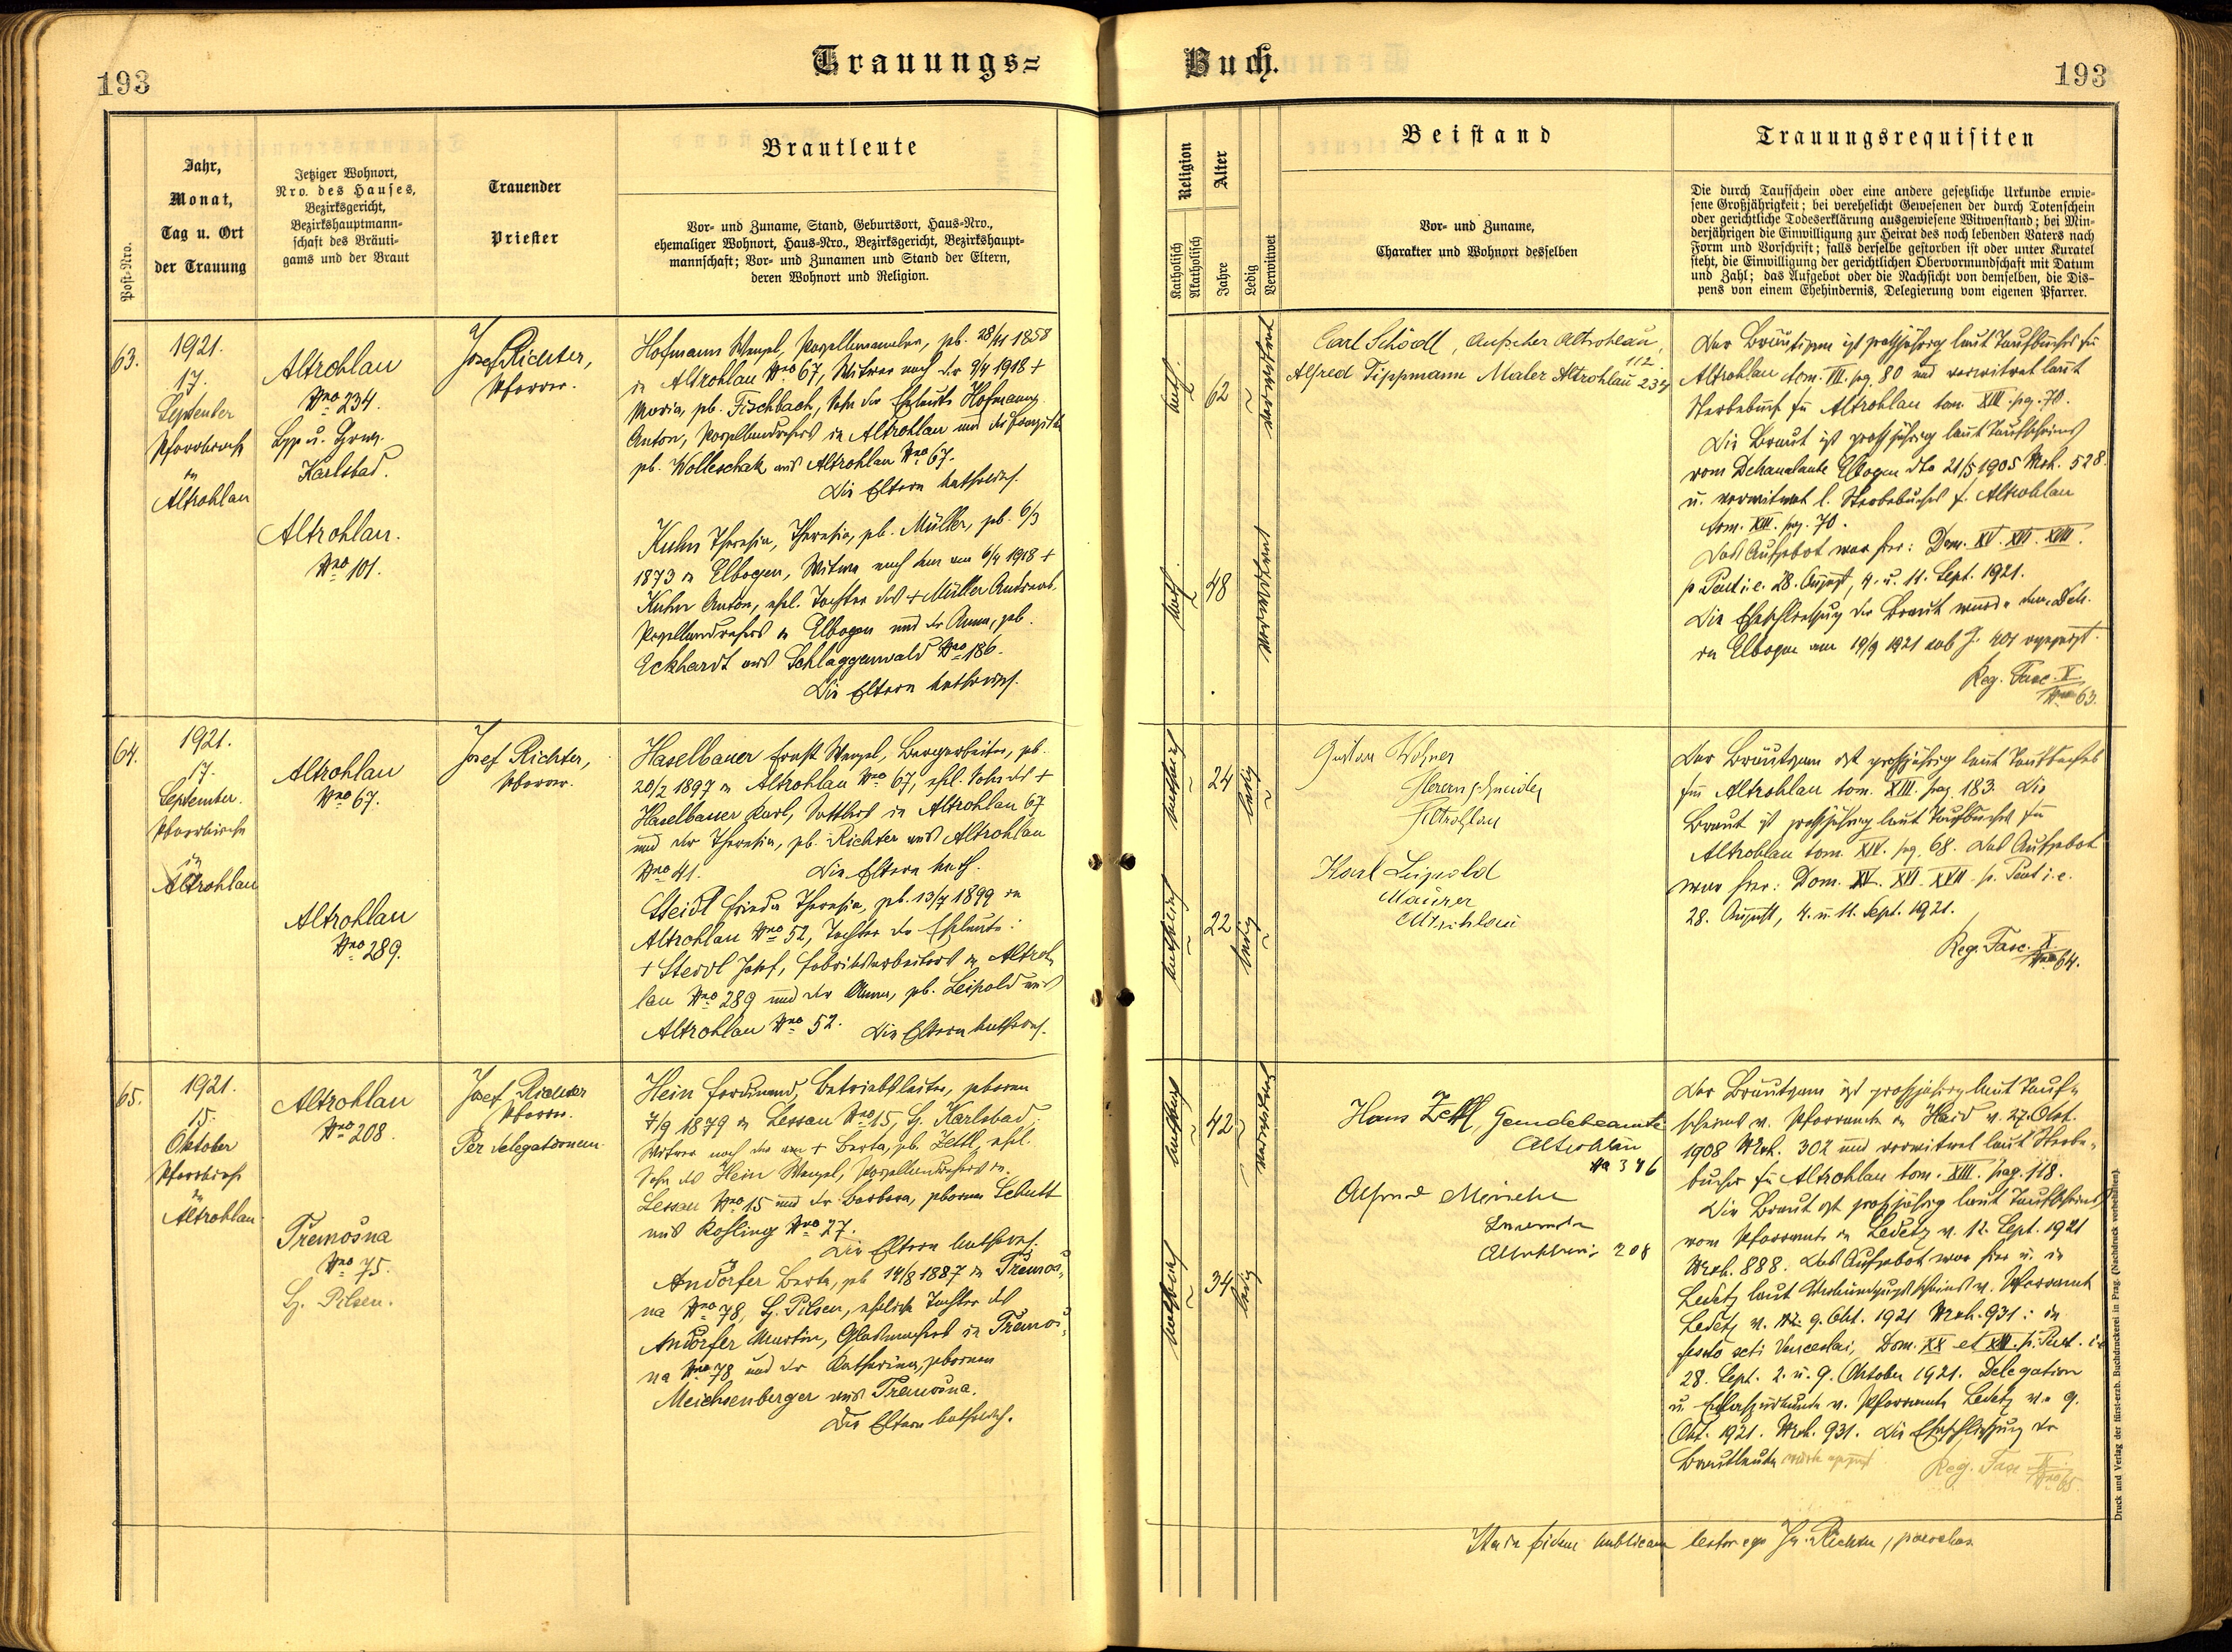 193
Trauungs=
Buch.
193
Post-Nro.
Jahr,
Monat,
Tag u. Ort
der Trauung
Jetziger Wohnort,
Nro. des Hauses,
Bezirksgericht,
Bezirkshauptmann-
schaft des Bräuti-
gams und der Braut
Trauender
Priester
Brautleute
Vor- und Zuname, Stand, Geburtsort, Haus-Nro.,
ehemaliger Wohnort, Haus-Nro., Bezirksgericht, Bezirkshaupt-
mannschaft; Vor- und Zunamen und Stand der Eltern,
deren Wohnort und Religion.
Religion
Katholisch
Akatholisch
Alter
Jahre
Ledig
Verwitwet
Beistand
Vor- und Zuname,
Charakter und Wohnort desselben
Trauungsrequisiten
Die durch Taufschein oder eine andere gesetzliche Urkunde erwie-
sene Großjährigkeit; bei verehelicht Gewesenen der durch Totenschein
oder gerichtliche Todeserklärung ausgewiesene Witwenstand; bei Min-
derjährigen die Einwilligung zur Heirat des noch lebenden Vaters nach
Form und Vorschrift; falls derselbe gestorben ist oder unter Kuratel
steht, die Einwilligung der gerichtlichen Obervormundschaft mit Datum
und Zahl; das Aufgebot oder die Nachsicht von demselben, die Dis-
pens von einem Ehehindernis, Delegierung vom eigenen Pfarrer.
63.
1921.
17.
September
Pfarrkirche
in
Altrohlau
Altrohlau
Nro 234.
Karlsbad.
Altrohlau.
Nro 101.
Josef Richter,
Pfarrer.
Hofmann Wenzel, Porzellanmaler, geb. 28/11 1858
in Altrohlau Nro 67, Witwer nach der 9/4 1918 +
Maria, geb. Fischbach, Sohn der Eheleute Hofmann
Anton, Porzellandrehers in Altrohlau und der
geb. Wolleschak aus Altrohlau Nro 67.
Die Eltern katholisch.
Kuhn Theresia, geb. Müller, geb. 6/3
1873 in Elbogen, Witwe nach dem am 6/4 1918 +
Kuhn Anton, ehel. Tochter des + Müller Andreas,
Porzellandrehers in Elbogen und der Anna, geb.
Eckhardt aus Schlaggenwald Nro 186.
Die Eltern katholisch.
kath. 62 verwitwet
kath. 48 verwitwet
Carl Schödl, Aufseher Altrohlau,
112
Alfred Tippmann Maler Altrohlau 234
Der Bräutigam ist großjährig laut Taufbuches für
Altrohlau tom. VII. pag. 80 und verwitwet laut
Sterbebuch für Altrohlau tom. XIII. pag. 70.
Die Braut ist großjährig laut Taufscheines
vom Dekanalamte Elbogen dto 21/5 1905 Mrk. 528.
u. verwitwet l. Sterbebuches f. Altrohlau
tom. XIII. pag. 70.
Das Aufgebot war hier: Dom. XV. XVI. XVII.
p. Pent. i. e. 28. August, 4. u. 11. Sept. 1921.
Die Eheschließung der Braut wurde dem Dek.
in Elbogen am 19/9 1921 sub Z. 401 angezeigt.
Reg. Fasc. X.
Nro 63.
64.
1921.
17.
September.
Pfarrkirche
in
Altrohlau
Altrohlau
Nro 67.
Altrohlau
Nro 289.
Josef Richter,
Pfarrer.
Haselbauer Ernst Wenzel, Bergarbeiter, geb.
20/2 1897 in Altrohlau Nro 67, ehel. Sohn des +
Haselbauer Karl, Sattlers in Altrohlau 67
und der Theresia, geb. Richter aus Altrohlau
Nro 41. Die Eltern kath.
Steidl Frieda Theresia, geb. 13/4 1899 in
Altrohlau Nro 52, Tochter der Eheleute:
+ Steidl Josef, Fabriksarbeiters in Altroh-
lau Nro 289 und der Anna, geb. Leipold aus
Altrohlau Nro 52. Die Eltern katholisch.
katholisch 24 ledig
katholisch 22 ledig
Gustav
Herrenschneider
Altrohlau
Karl Leipold
Maurer
Altrohlau
Der Bräutigam ist großjährig laut Taufbuches
für Altrohlau tom. XIII. pag. 183. Die
Braut ist großjährig laut Taufbuches für
Altrohlau tom. XIV. pag. 68. Das Aufgebot
war hier: Dom. XV. XVI. XVII. p. Pent. i. e.
28. August, 4. u. 11. Sept. 1921.
Reg. Fasc. X.
Nro 64.
65.
1921.
15.
Oktober
Pfarrkirche
in
Altrohlau
Altrohlau
Nro 208.
Třemošna
Nro 75.
Pilsen.
Josef Richter
Pfarrer.
Per delegationem.
Hein Ferdinand, Betriebsleiter, geboren
7/9 1879 in Lessau Nro 15, Karlsbad,
Witwer nach der + Berta, geb. Zettl, ehel.
Sohn des Hein Wenzel, Porzellandrehers in
Lessau Nro 15 und der Barbara, geborene Schutt
aus Rossling Nro 27.
Die Eltern katholisch.
Andörfer Berta, geb. 14/8 1887 in Třemoš-
na Nro 78, Pilsen, eheliche Tochter des
Andörfer Martin, Glasmachers in Třemoš-
na Nro 78 und der Katharina, geborenen
Meichsenberger aus Třemošna.
Die Eltern katholisch.
katholisch 42 verwitwet
katholisch 34 ledig
Hans Zettl, Gemeindebeamte
Altrohlau
No 346
Alfred
Altrohlau 208
Der Bräutigam ist großjährig laut Tauf-
scheines v. Pfarramte in Haid v. 27. Okt.
1908 Mrk. 302 und verwitwet laut Sterbe-
buches für Altrohlau tom. XIII. pag. 118.
Die Braut ist großjährig laut Taufscheines
vom Pfarramte in Ledetz v. 12. Sept. 1921
Mrk. 888. Das Aufgebot war hier u. in
Ledetz laut Verkündigungsscheines v. Pfarramt
Ledetz v. 9. Okt. 1921 Mrk. 931: in
festo scti Venceslai, Dom. XX et XXI. p. Pent. i. e.
28. Sept. 2. u. 9. Oktober 1921. Delegation
v. Pfarramte Ledetz v. 9.
Okt. 1921. Mrk. 931. Die Eheschließung der
Brautleute wurde angezeigt.
Reg. Fasc. X.
Nro 65.
Ita in fidem publicam testor ego Jos. Richter, parochus
Druck und Verlag der fürst-erzb. Buchdruckerei in Prag. (Nachdruck vorbehalten).